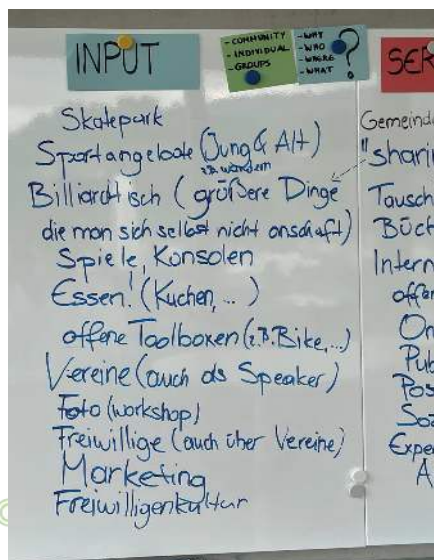 INPUT
- COMMUNITY
- INDIVIDUAL
- GROUPS
- WHY
- WHO
- WHERE
- WHAT
?
SER
Skatepark
Sportangebote (Jung & Alt)
z.B. wandern
Billiardtisch (größere Dinge
die man sich selbst nicht anschaft)
Spiele, Konsolen
Essen! (Kuchen, ...)
offene Toolboxen (z.B. Bike, ...)
Vereine (auch als Speaker)
Foto (workshop)
Freiwillige (auch über Vereine)
Marketing
Freiwilligenkultur
Gemeinde
"sharin
Tausch
Büch
Intern
offen
On
Pub
Pos
Soz
Exper
A